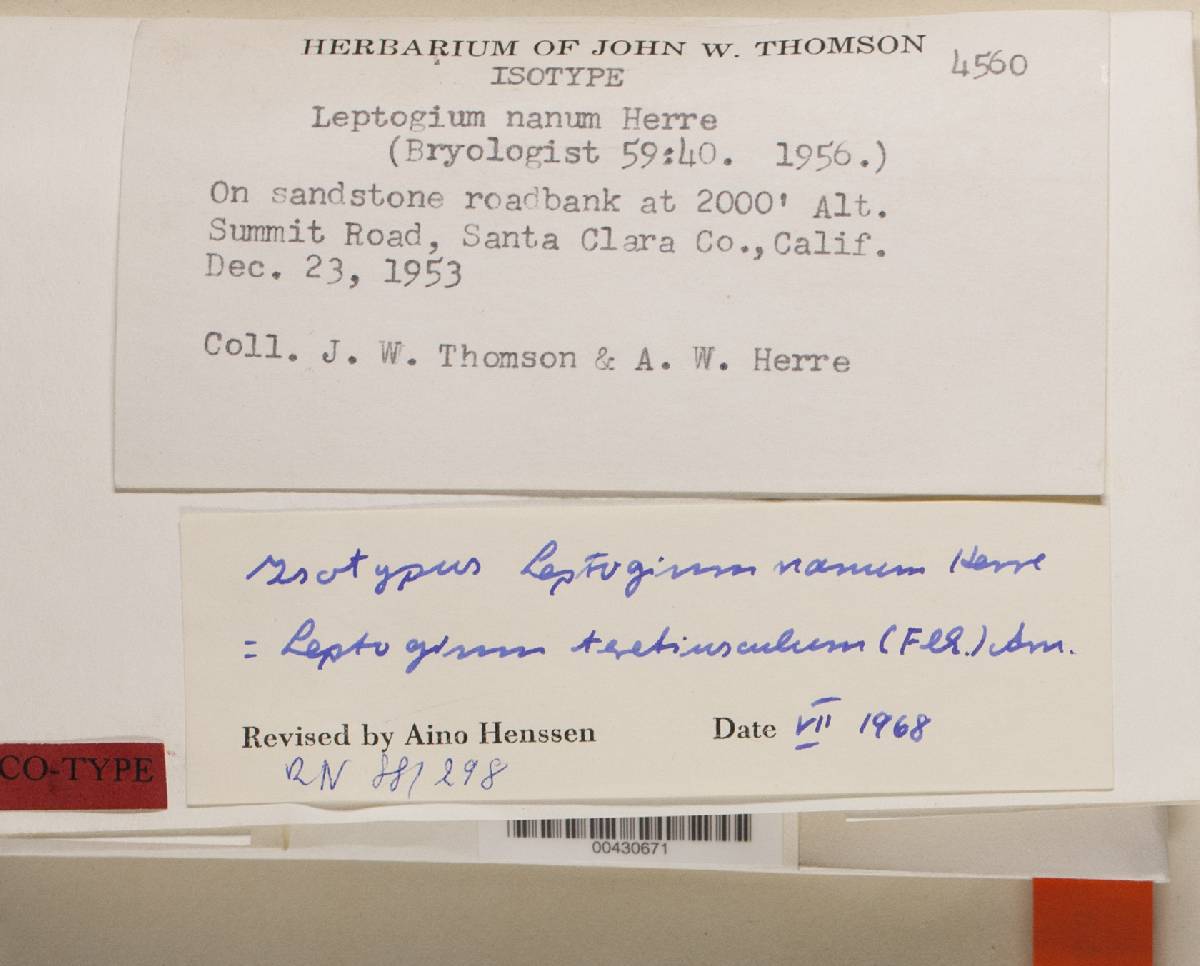 HERBARIUM OF JOHN W. THOMSON
4560
ISOTYPE
Leptogium nanum Herre
(Bryologist 59:40. 1956.)
On sandstone roadbank at 2000' Alt.
Summit Road, Santa Clara Co., Calif.
Dec. 23, 1953
Coll. J. W. Thomson & A. W. Herre
Isotypus Leptogium nanum Herre
= Leptogium teretiusculum (Flk.) Arn.
Revised by Aino Henssen Date VII 1968
CO-TYPE
00430671